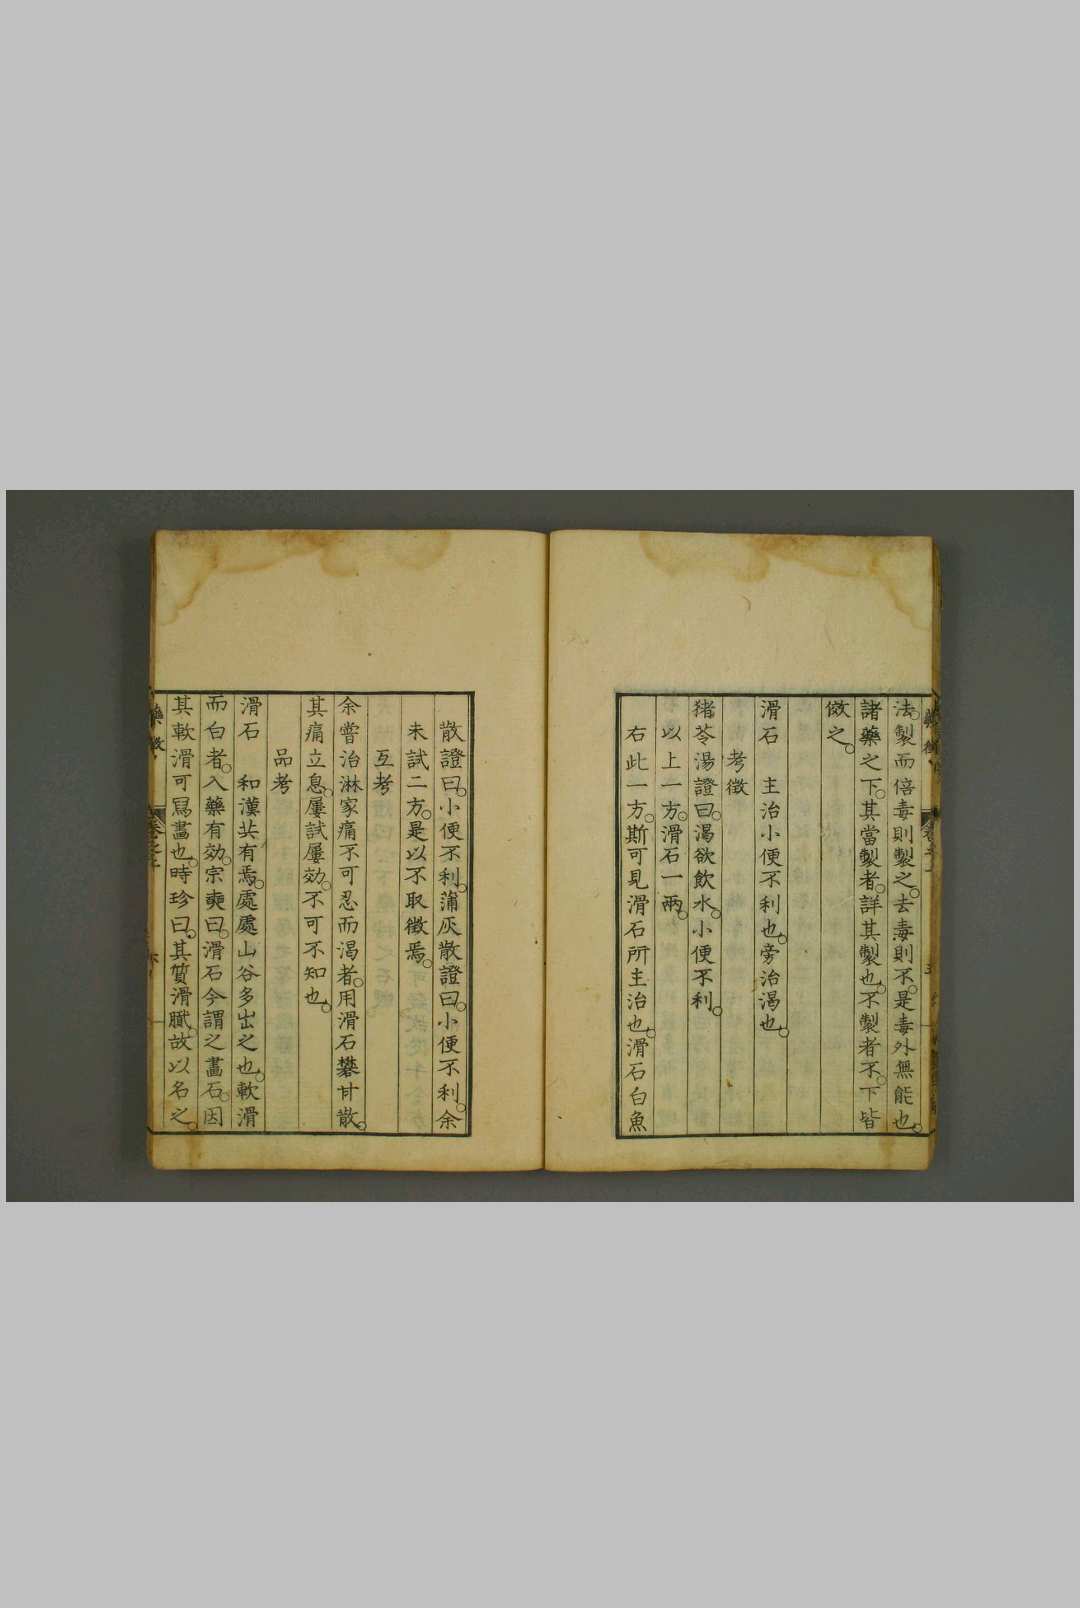 法製而倍毒則製之。去毒則不。是毒外無能也。
諸藥之下。其當製者。詳其製也。不製者。不下皆
傚之。
滑石　主治小便不利也。旁治渴也。
考徵
猪苓湯證曰。渴欲飲水。小便不利。
以上一方。滑石一兩。
右此一方。斯可見滑石所主治也。滑石白魚
散證曰。小便不利。蒲灰散證曰。小便不利。余
未試二方。是以不取徵焉。
互考
余嘗治淋家痛不可忍而渴者。用滑石礬甘散。
其痛立息。屢試屢効。不可不知也。
品考
滑石　和漢共有焉。處處山谷多出之也。軟滑
而白者。入藥有効。宗奭曰。滑石今謂之畫石。因
其軟滑可寫畫也。時珍曰。其質滑膩。故以名之。
藥徵